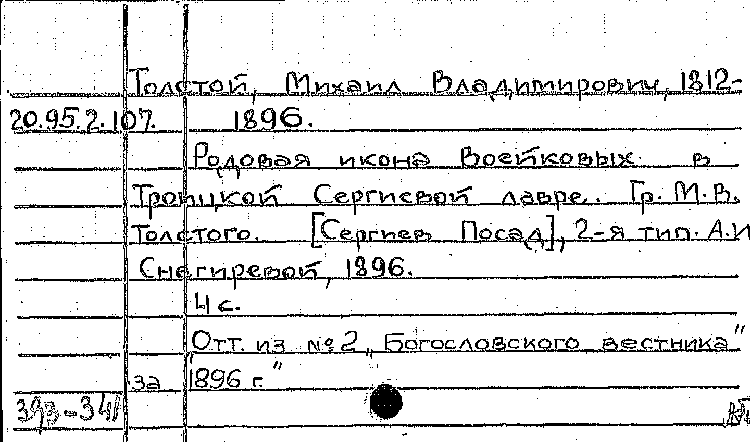 Толстой, Михаил Владимирович, 1812-
20.95.2.107. 1896.
Родовая икона Воейковых в
Троицкой Сергиевой лавре. Гр. М.В.
Толстого. [Сергиев Посад], 2-я тип. А.И
Снегиревой, 1896.
4 с.
Отт. из № 2 „Богословского вестника"
за "1896 г."